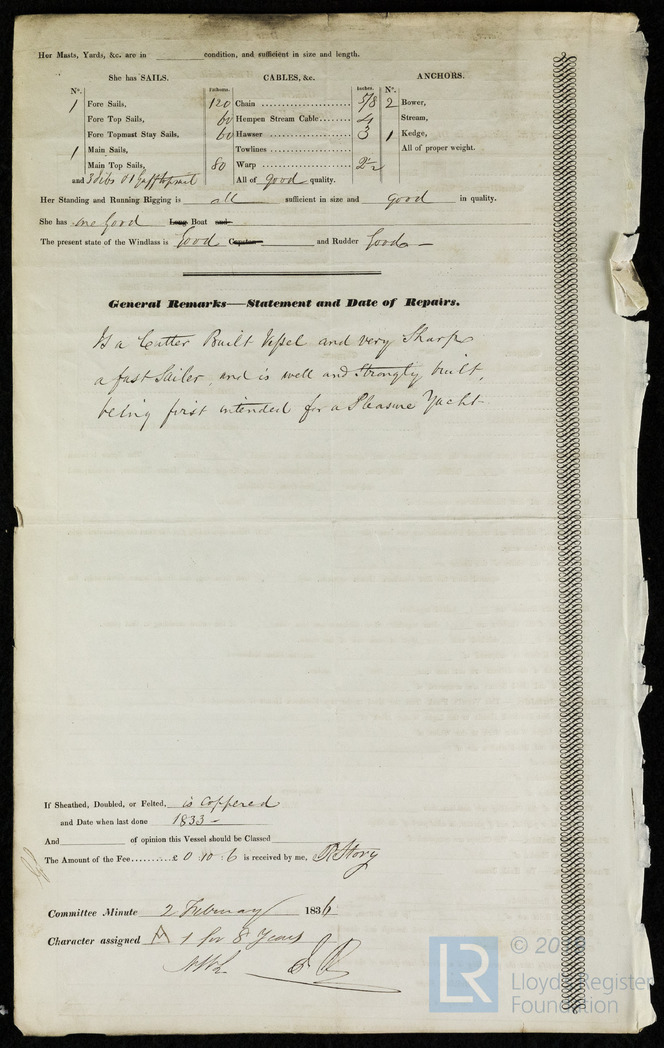 Her Masts, Yards, &c. are in condition, and sufficient in size and length.
She has SAILS. CABLES, &c. ANCHORS.
Nº. Fathoms. Inches. Nº.
1 Fore Sails, 120 Chain 5/8 2 Bower,
Fore Top Sails, 60 Hempen Stream Cable 4 Stream,
Fore Topmast Stay Sails, 60 Hawser 3 1 Kedge,
1 Main Sails, Towlines All of proper weight.
Main Top Sails, 80 Warp 2½
and 3 Jibs & 1 Gafftopsail All of good quality.
Her Standing and Running Rigging is all sufficient in size and good in quality.
She has one Good Long Boat and
The present state of the Windlass is Good Capstan and Rudder Good
General Remarks—Statement and Date of Repairs.
Is a Cutter Built Vessel and very Sharp
a fast Sailer, and is well and Strongly built,
being first intended for a Pleasure Yacht
If Sheathed, Doubled, or Felted, is Coppered
and Date when last done 1833
And of opinion this Vessel should be Classed
The Amount of the Fee..........£ 0 : 10 : 6 is received by me, Story
Committee Minute 2 February 1836
Character assigned A 1 for 8 Years
LR
© 20
Lloyd's Register
Foundation